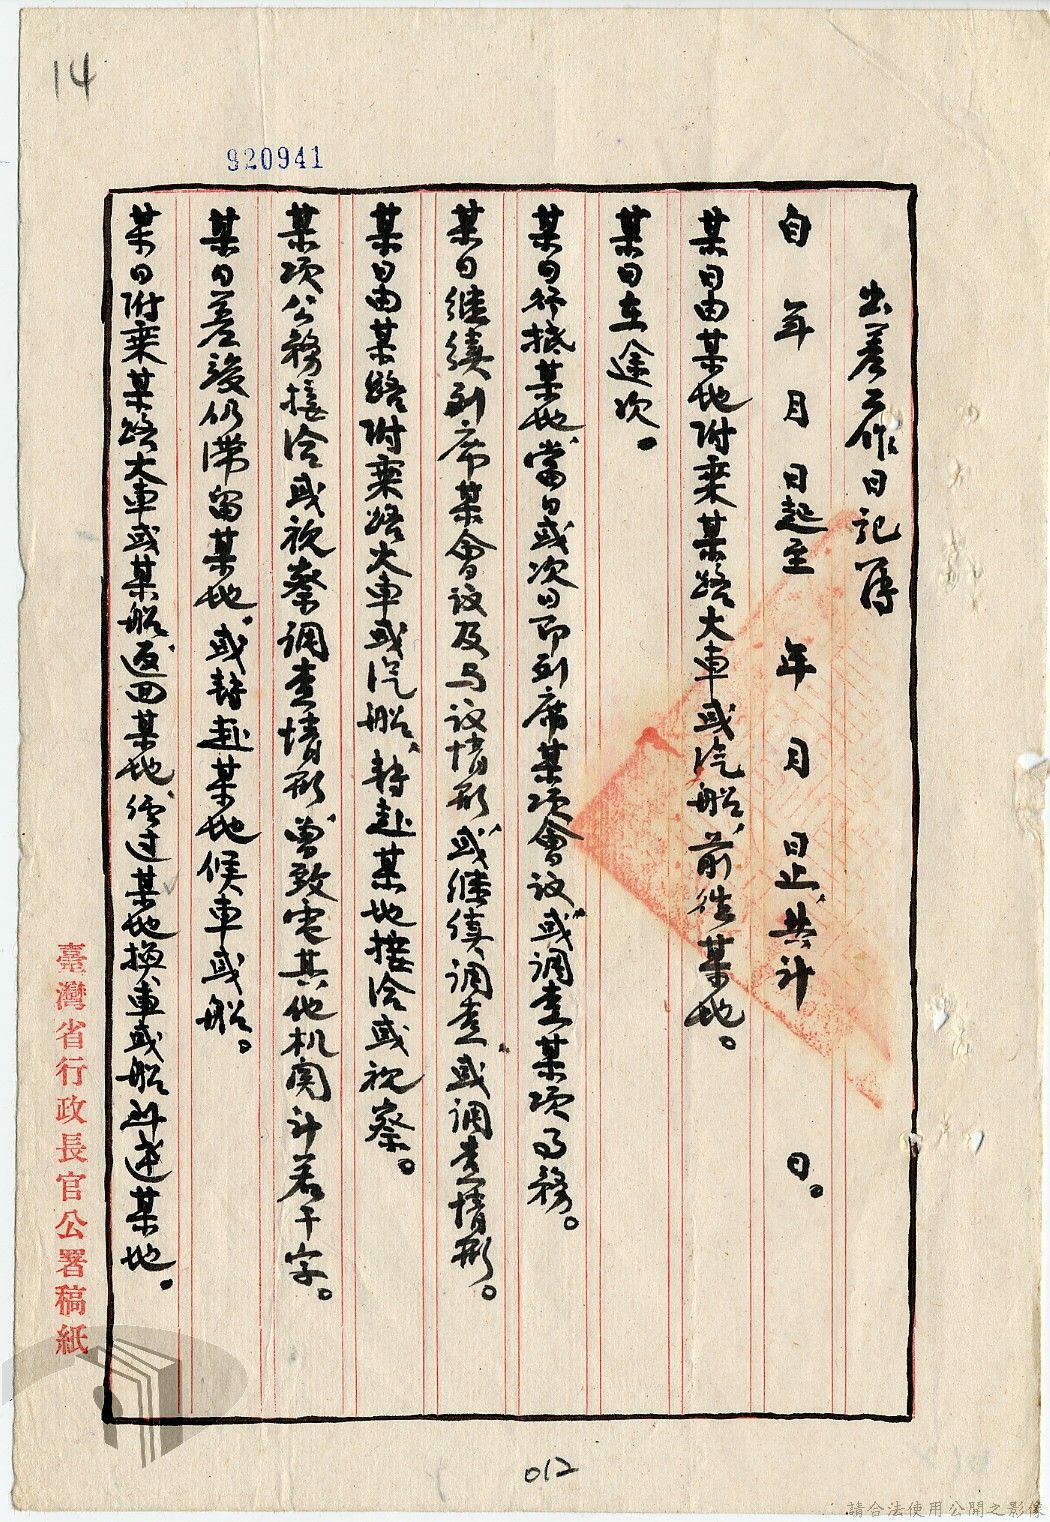 14
920941
出差工作日記簿
自　年　月　日起至　年　月　日止、共計　日。
某日由某地附乘某路火車或汽船、前往某地。
某日在途次。
某日行抵某地、當日或次日即列席某項會议或調查某項事務。
某日继續列席某會议及与议情形、或继續調查或調查情形。
某日由某路附乘路火車或汽船、轉赴某地接洽或視察。
某項公務接洽或視察調查情形、曾致电其他机関計若干字。
某日差竣仍滯留某地、或轉赴某地候車或船。
某日附乘某路火車或某船、返回某地、經过某地換車或船到達某地。
臺灣省行政長官公署稿紙
012
請合法使用公開之影像